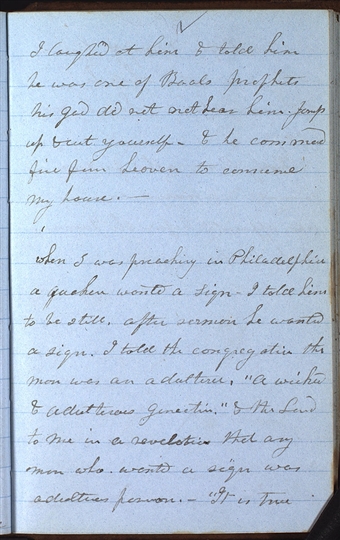 I laughed at him & told him
he was one of Baals prophets
his god did not not hear him. jump
up & cut yourself - & he commd
fire from heaven to consume
my house. —
when I was preaching in Philadelphia
a quaker wantd a sign - I told him
to be still. after sermon he wantd
a sign. I told the congregation the
man was an adulterer, "A wicked
& adulterous generation." & the Lord
to me in a revelation that any
man who. wantd a sign was
adulterous person. - "It is true